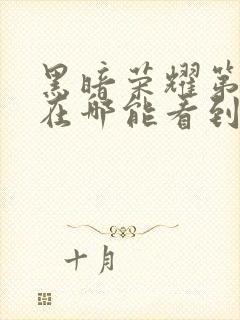 黑暗荣耀第
在哪能看到
十月